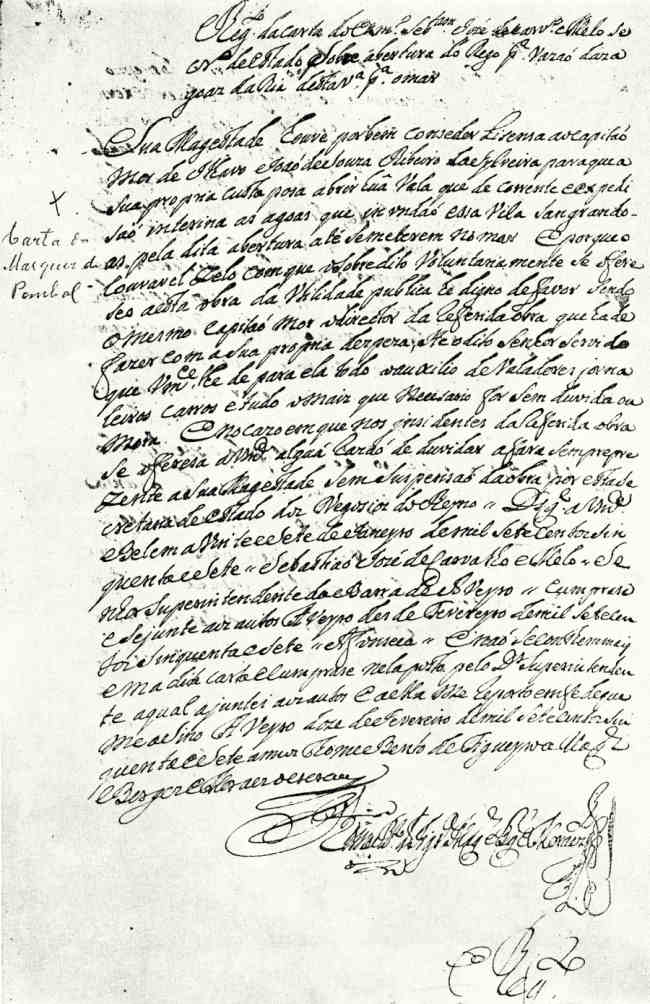 Regto da carta do Exmo Sebam José de Carvo e Melo se
cro de estado sobre abertura do Rego pa vazaó da za
goaz da Ria desta va pa o mar
Sua Magestade houve por bem conseder Lisensa ao capitaó
Mor de Ilhavo e Joaó de Souza Ribeiro da Sylveira para que a
sua propria custa posa abrir huã Vala que de corrente e expedi
saó interina as agoas que inundaó essa Vila sangrando-
as pela dita abertura até se meterem no mar E porque o
louvavel Zelo com que o sobredito Voluntariamente se ofere
seo a esta obra da Utilidade publica he digno de favor sendo
o mesmo Capitaó Mor o director da referida obra que ha de
fazer com a sua propria despeza, He o dito Senhor servido
que Vmce lhe de para ela todo o auxilio de Valadores jorna
leiros carros e tudo o maiz que Nesesario for sem duvida ou
Mora E no cazo em que nos insidentes da referida obra
se oferesa a Vmce alguã Razaó de duvidar a fara sempre pre
zente a Sua Magestade sem suspensaó da obra por esta se
cretaria de Estado doz Negosios do Reyno // Ds ge a Vmce
Belem a Vinte e sete de Janeyro de mil sete Centos sin
quenta e sete // Sebastiaó José de Carvalho e Melo // Se
nhor Superintendente da Barra de AVeyro // Cumprase
e se junte aoz autos AVeyro des de Fevereyro de mil sete cen
tos e sinquenta e sete // Afonseca // E naó se continha mais
em a dita carta e cumprase nela posto pelo Dr Superintenden
te a qual ajuntei aoz autos e a ella me reporto em fe de que
me asino AVeyro doze de Fevereiro de mil sete centos sin
quenta e sete annos Thome Bento de Figueyroa
e Borges e Moraes o escrevy
×
Carta do
Marquez de
Pombal